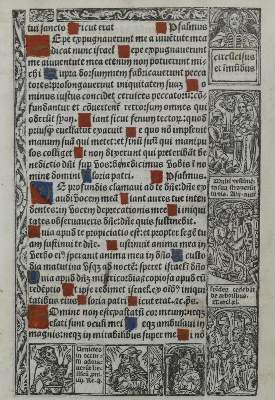 tui sancto Sicut erat Psalmus
Sepe expugnauerunt me a iuuentute mea
dicat nunc israel Sepe expugnauerunt
me a iuuentute mea etenim non potuerunt mi
chi Supra dorsum meum fabricauerunt pecca
tores: prolongauerunt iniquitatem suam Do
minus iustus concidet ceruices peccatorum: con
fundantur et conuertentur retrorsum omnes qui
oderunt syon Fiant sicut fenum tectorum: quod
priusquam euellatur exaruit De quo non impleuit
manum suam qui metet: et sinum suum qui manipu
los colliget Et non dixerunt qui preteribant be
nedictio domini super vos: benediximus vobis in no
mine domini Gloria patri Psalmus
De profundis clamaui ad te domine: domine ex
audi vocem meam Fiant aures tue inten
dentes: in vocem deprecationis mee Si iniqui
tates obseruaueris domine: domine quis sustinebit
Quia apud te propiciatio est: et propter legem tu
am sustinui te domine Sustinuit anima mea in
verbo eius: sperauit anima mea in domino A cu
stodia matutina vsque ad noctem: speret israel in domino
Quia apud dominum misericordia: et copiosa apud eum
redemptio Et ipse redimet israel: ex omnibus iniqui
tatibus eius Gloria patri Sicut erat
Domine non est exaltatum cor meum: neque
elati sunt oculi mei Neque ambulaui in
magnis: neque in mirabilibus super me